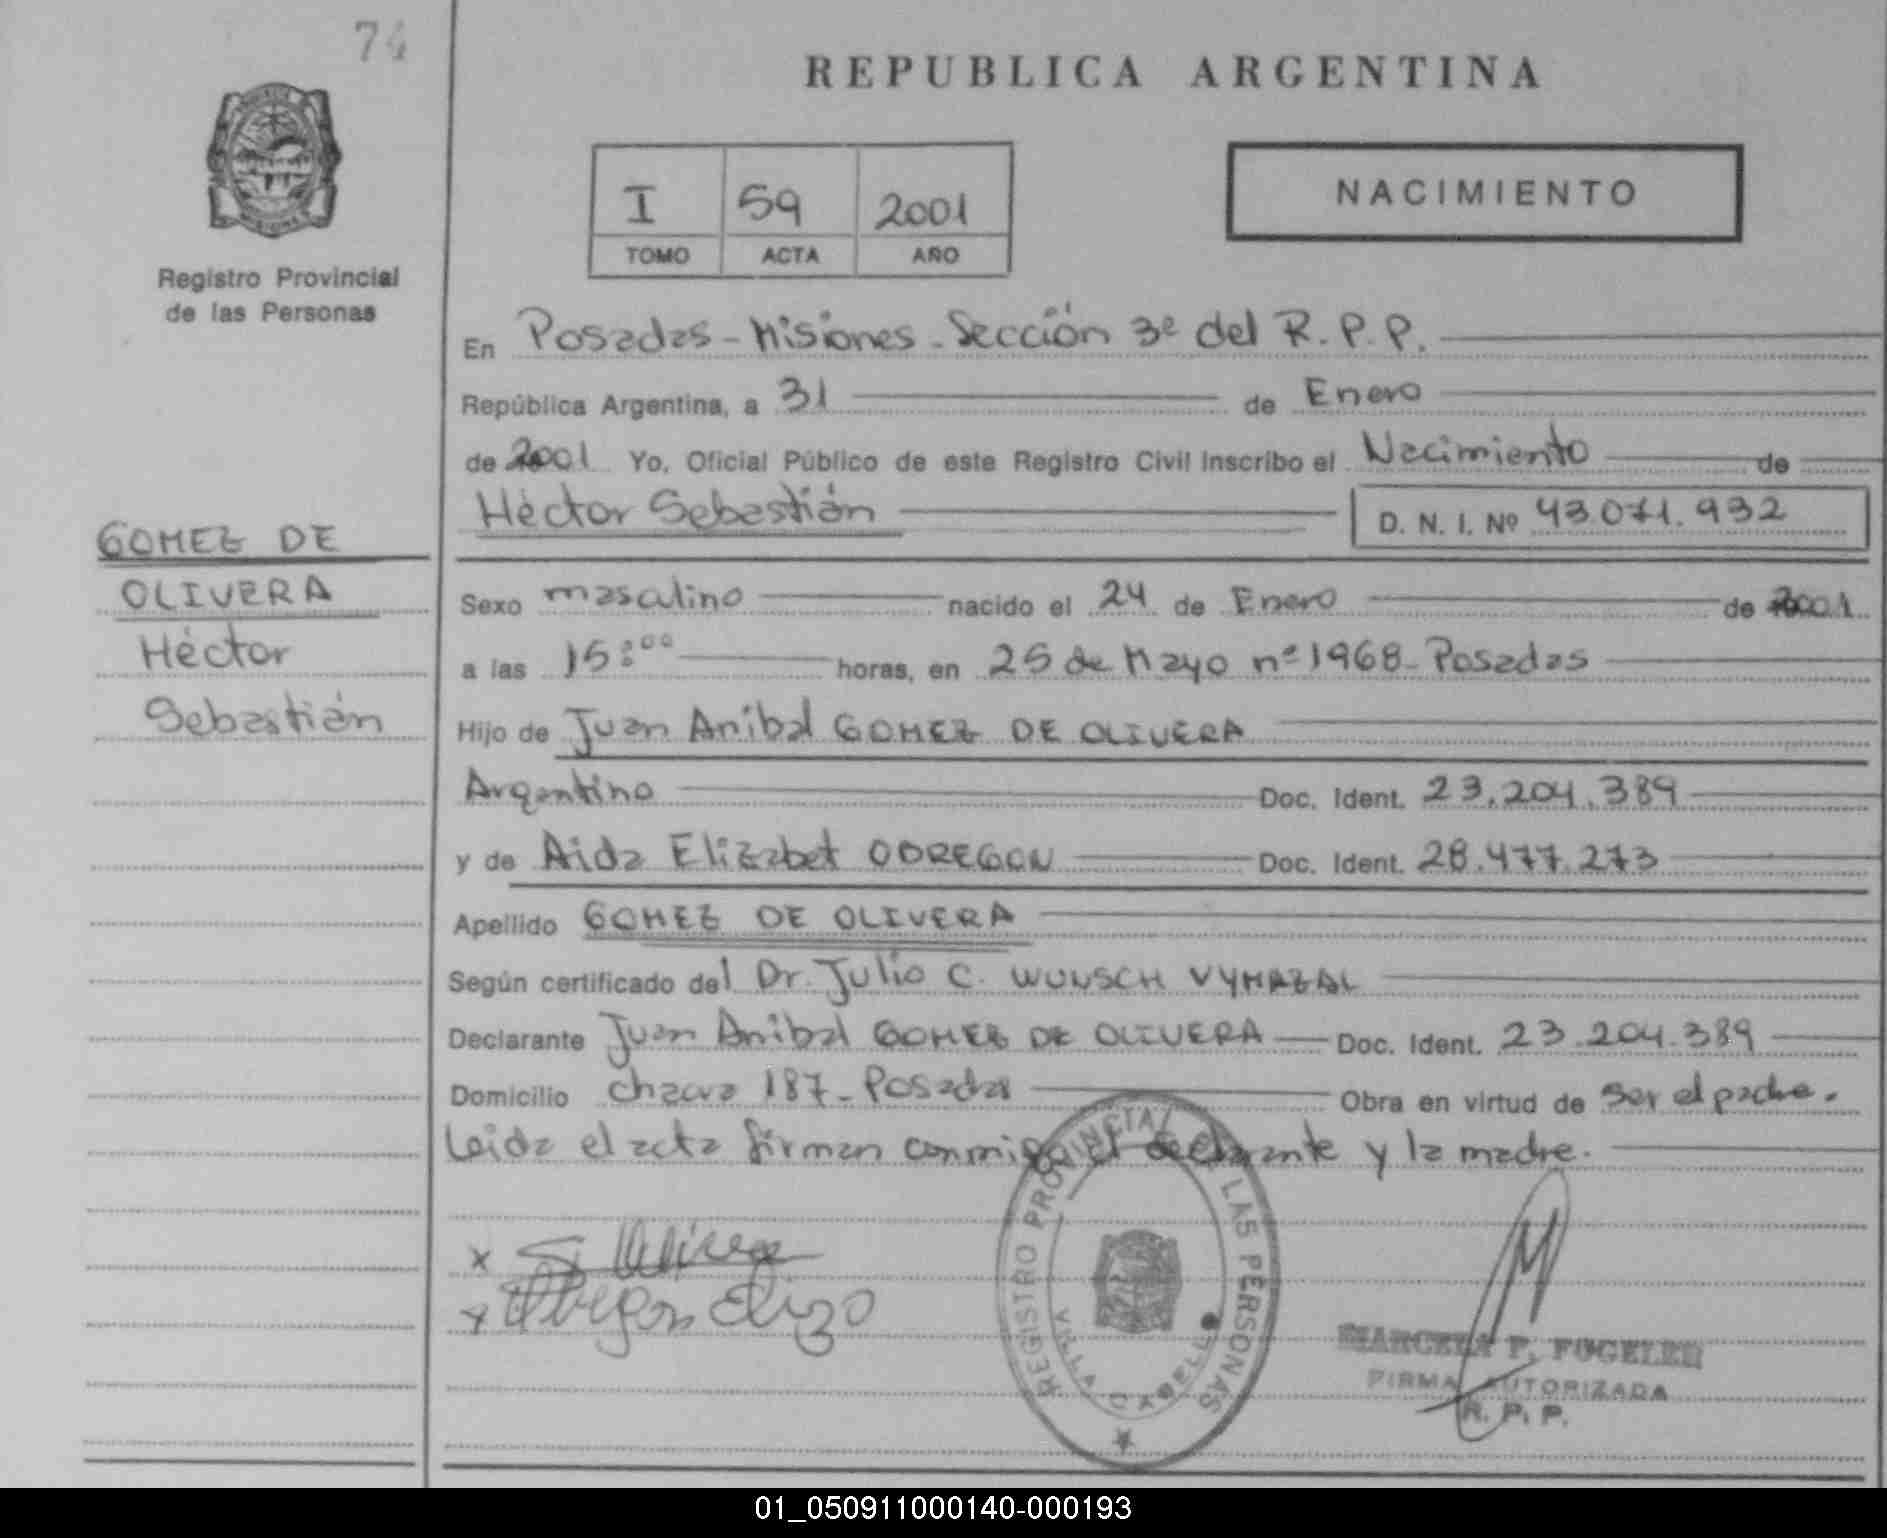 74
REPUBLICA ARGENTINA
I 59 2001
TOMO ACTA AÑO
NACIMIENTO
Registro Provincial
de las Personas
En Posadas - Misiones - Sección 3ª del R.P.P.
República Argentina, a 31 de Enero
de 2001 Yo, Oficial Público de este Registro Civil Inscribo el Nacimiento de
Héctor Sebastián D. N. I. Nº 43.071.932
GOMEZ DE
OLIVERA
Héctor
Sebastián
Sexo masculino nacido el 24 de Enero de 2001
a las 15:00 horas, en 25 de Mayo nº 1968 - Posadas
Hijo de Juan Anibal GOMEZ DE OLIVERA
Argentino Doc. Ident. 23.204.389
y de Aida Elizabet OBREGON Doc. Ident. 28.477.273
Apellido GOMEZ DE OLIVERA
Según certificado del Dr. Julio C. WUNSCH VYMAZAL
Declarante Juan Anibal GOMEZ DE OLIVERA Doc. Ident. 23.204.389
Domicilio chacra 187 - Posadas Obra en virtud de ser el padre.
Leida el acta firman conmigo el declarante y la madre.
x Olivera
x Obregon Eliza
REGISTRO PROVINCIAL LAS PERSONAS
VILLA CABELLO
MARCELA F. FOGELER
FIRMA AUTORIZADA
R. P. P.
01_050911000140-000193